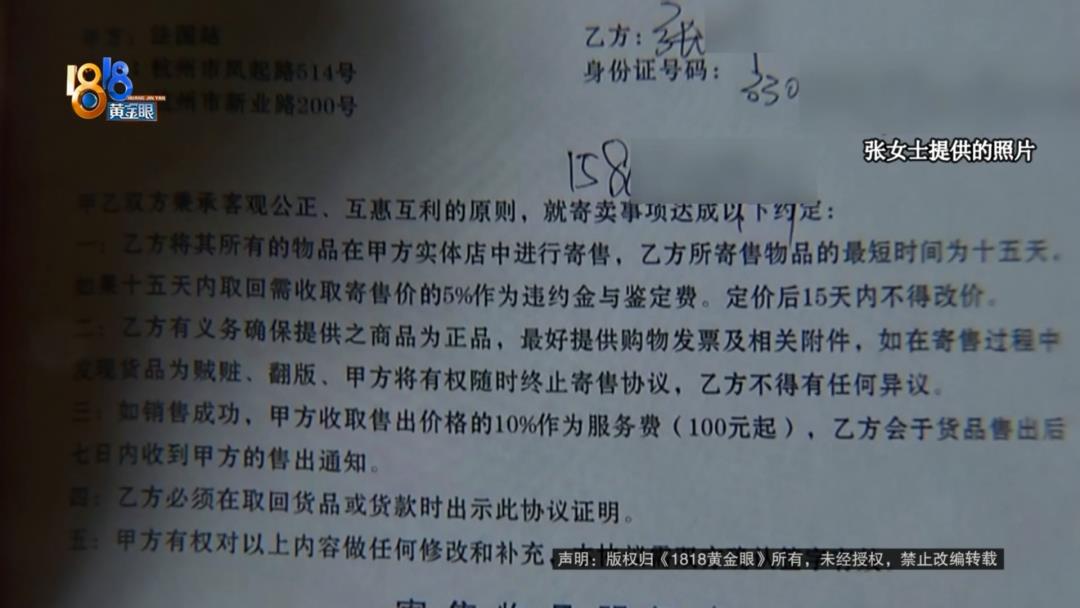 甲方：法国站
乙方：张
杭州市凤起路514号
身份证号码：330
杭州市新业路200号
1818黄金眼
HUANG JIN YAN
张女士提供的照片
158
甲乙双方秉承客观公正、互惠互利的原则，就寄卖事项达成以下约定：
一：乙方将其所有的物品在甲方实体店中进行寄售，乙方所寄售物品的最短时间为十五天。
如果十五天内取回需收取寄售价的5%作为违约金与鉴定费。定价后15天内不得改价。
二：乙方有义务确保提供之商品为正品，最好提供购物发票及相关附件，如在寄售过程中
发现货品为贼赃、翻版、甲方将有权随时终止寄售协议，乙方不得有任何异议。
三：如销售成功，甲方收取售出价格的10%作为服务费（100元起），乙方会于货品售出后
七日内收到甲方的售出通知。
四：乙方必须在取回货品或货款时出示此协议证明。
五：甲方有权对以上内容做任何修改和补充，
声明：版权归《1818黄金眼》所有，未经授权，禁止改编转载